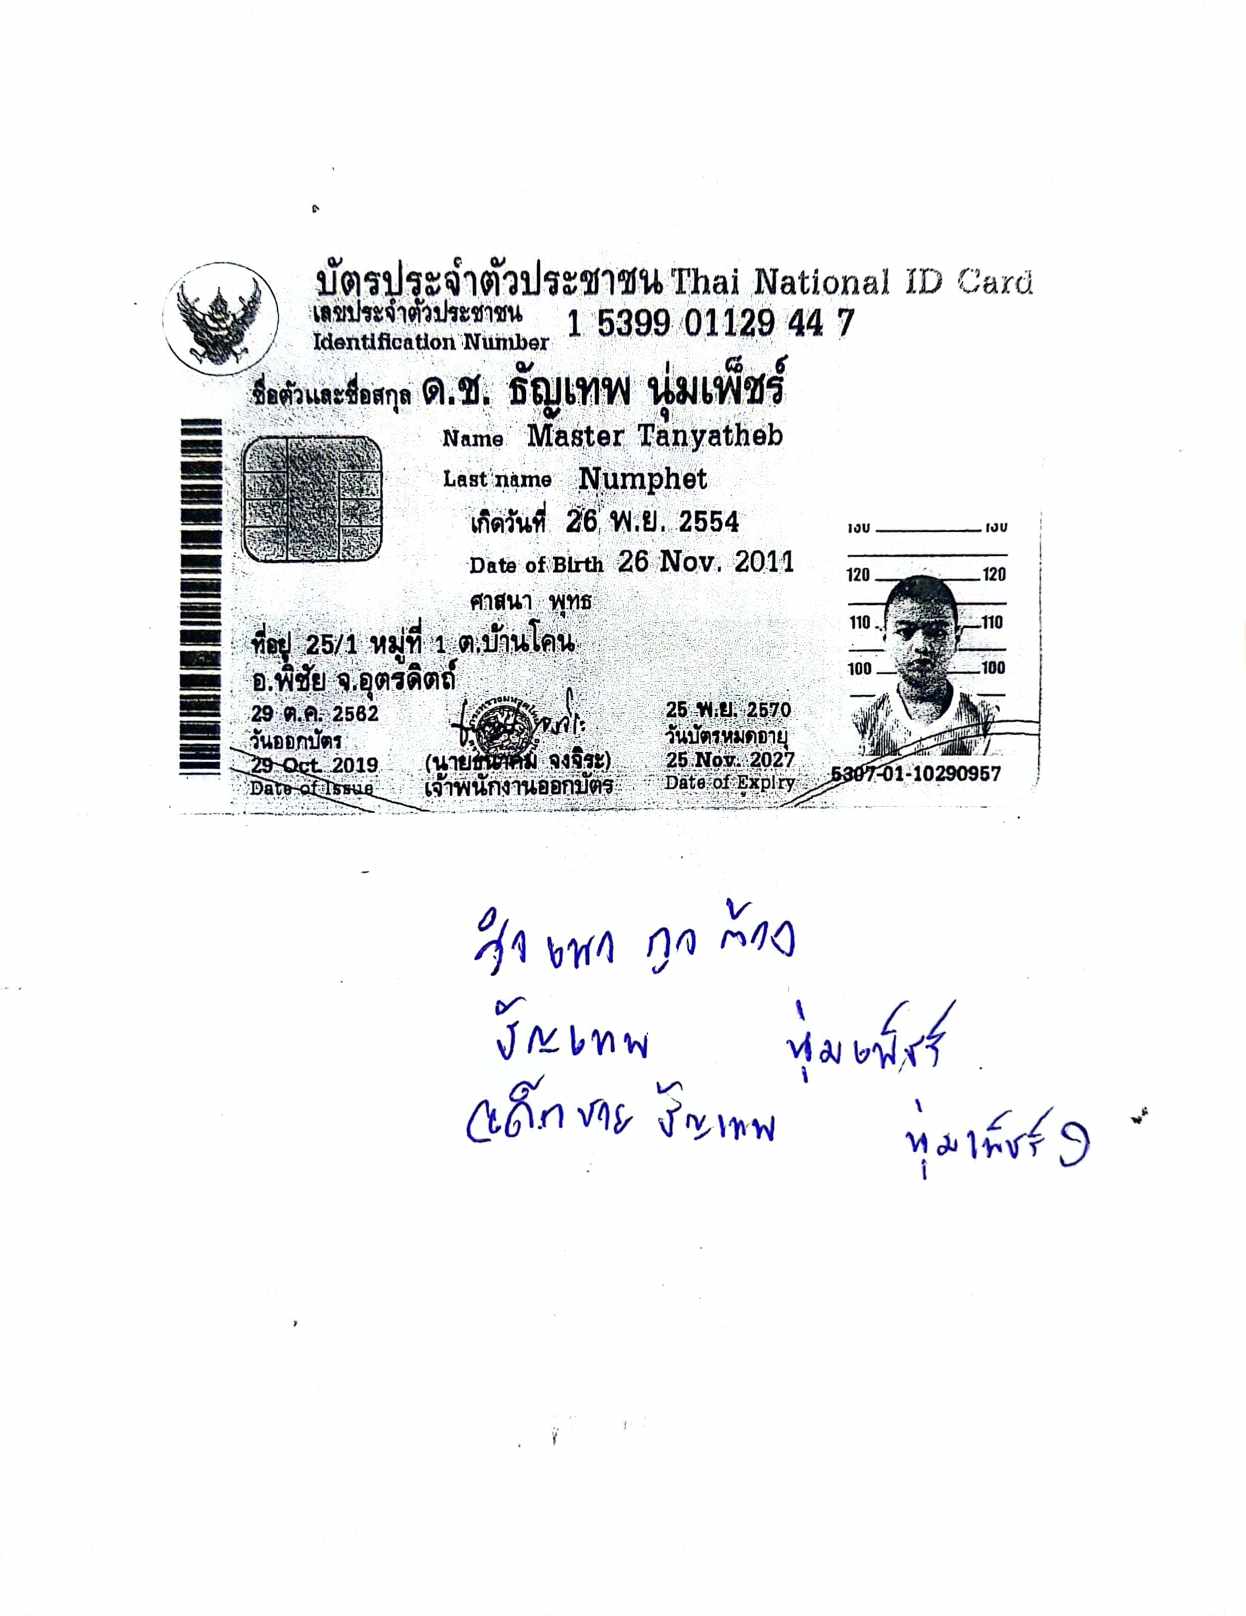 บัตรประจำตัวประชาชน Thai National ID Card
เลขประจำตัวประชาชน
Identification Number 1 5399 01129 44 7
ชื่อตัวและชื่อสกุล ด.ช. ธัญเทพ นุ่มเพ็ชร์
Name Master Tanyatheb
Last name Numphet
เกิดวันที่ 26 พ.ย. 2554
Date of Birth 26 Nov. 2011
ศาสนา พุทธ
ที่อยู่ 25/1 หมู่ที่ 1 ต.บ้านโคน
อ.พิชัย จ.อุตรดิตถ์
29 ต.ค. 2562
วันออกบัตร
29 Oct. 2019
Date of Issue
(นายธนาคม จงจิระ)
เจ้าพนักงานออกบัตร
25 พ.ย. 2570
วันบัตรหมดอายุ
25 Nov. 2027
Date of Expiry
120 120
110 110
100 100
5307-01-10290957
สำเนาถูกต้อง
ธัญเทพ นุ่มเพ็ชร์
(เด็กชาย ธัญเทพ นุ่มเพ็ชร์)